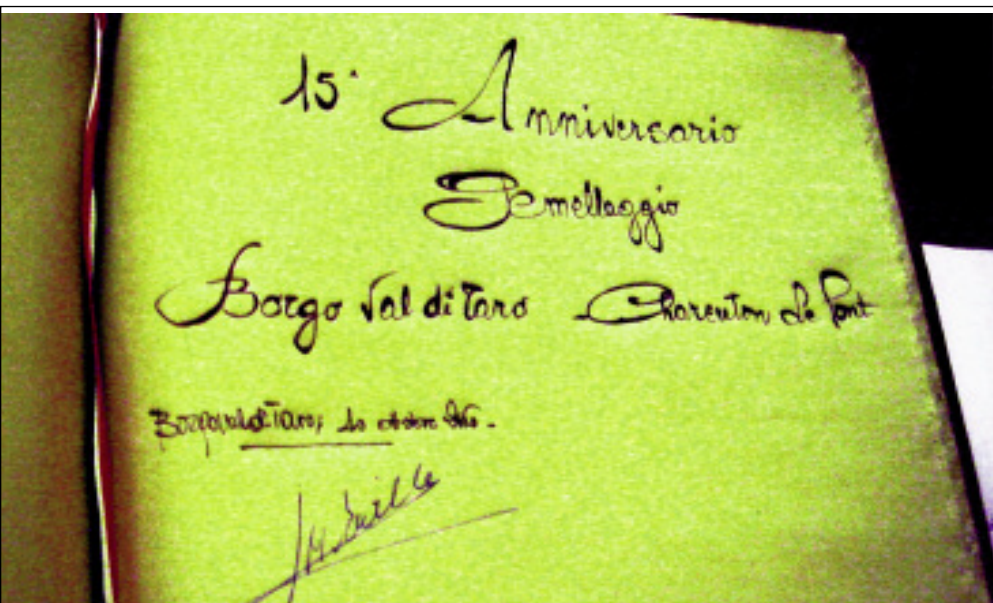 15° Anniversario
Gemellaggio
Borgo Val di Taro Charenton Le Pont
Borgovalditaro, 10